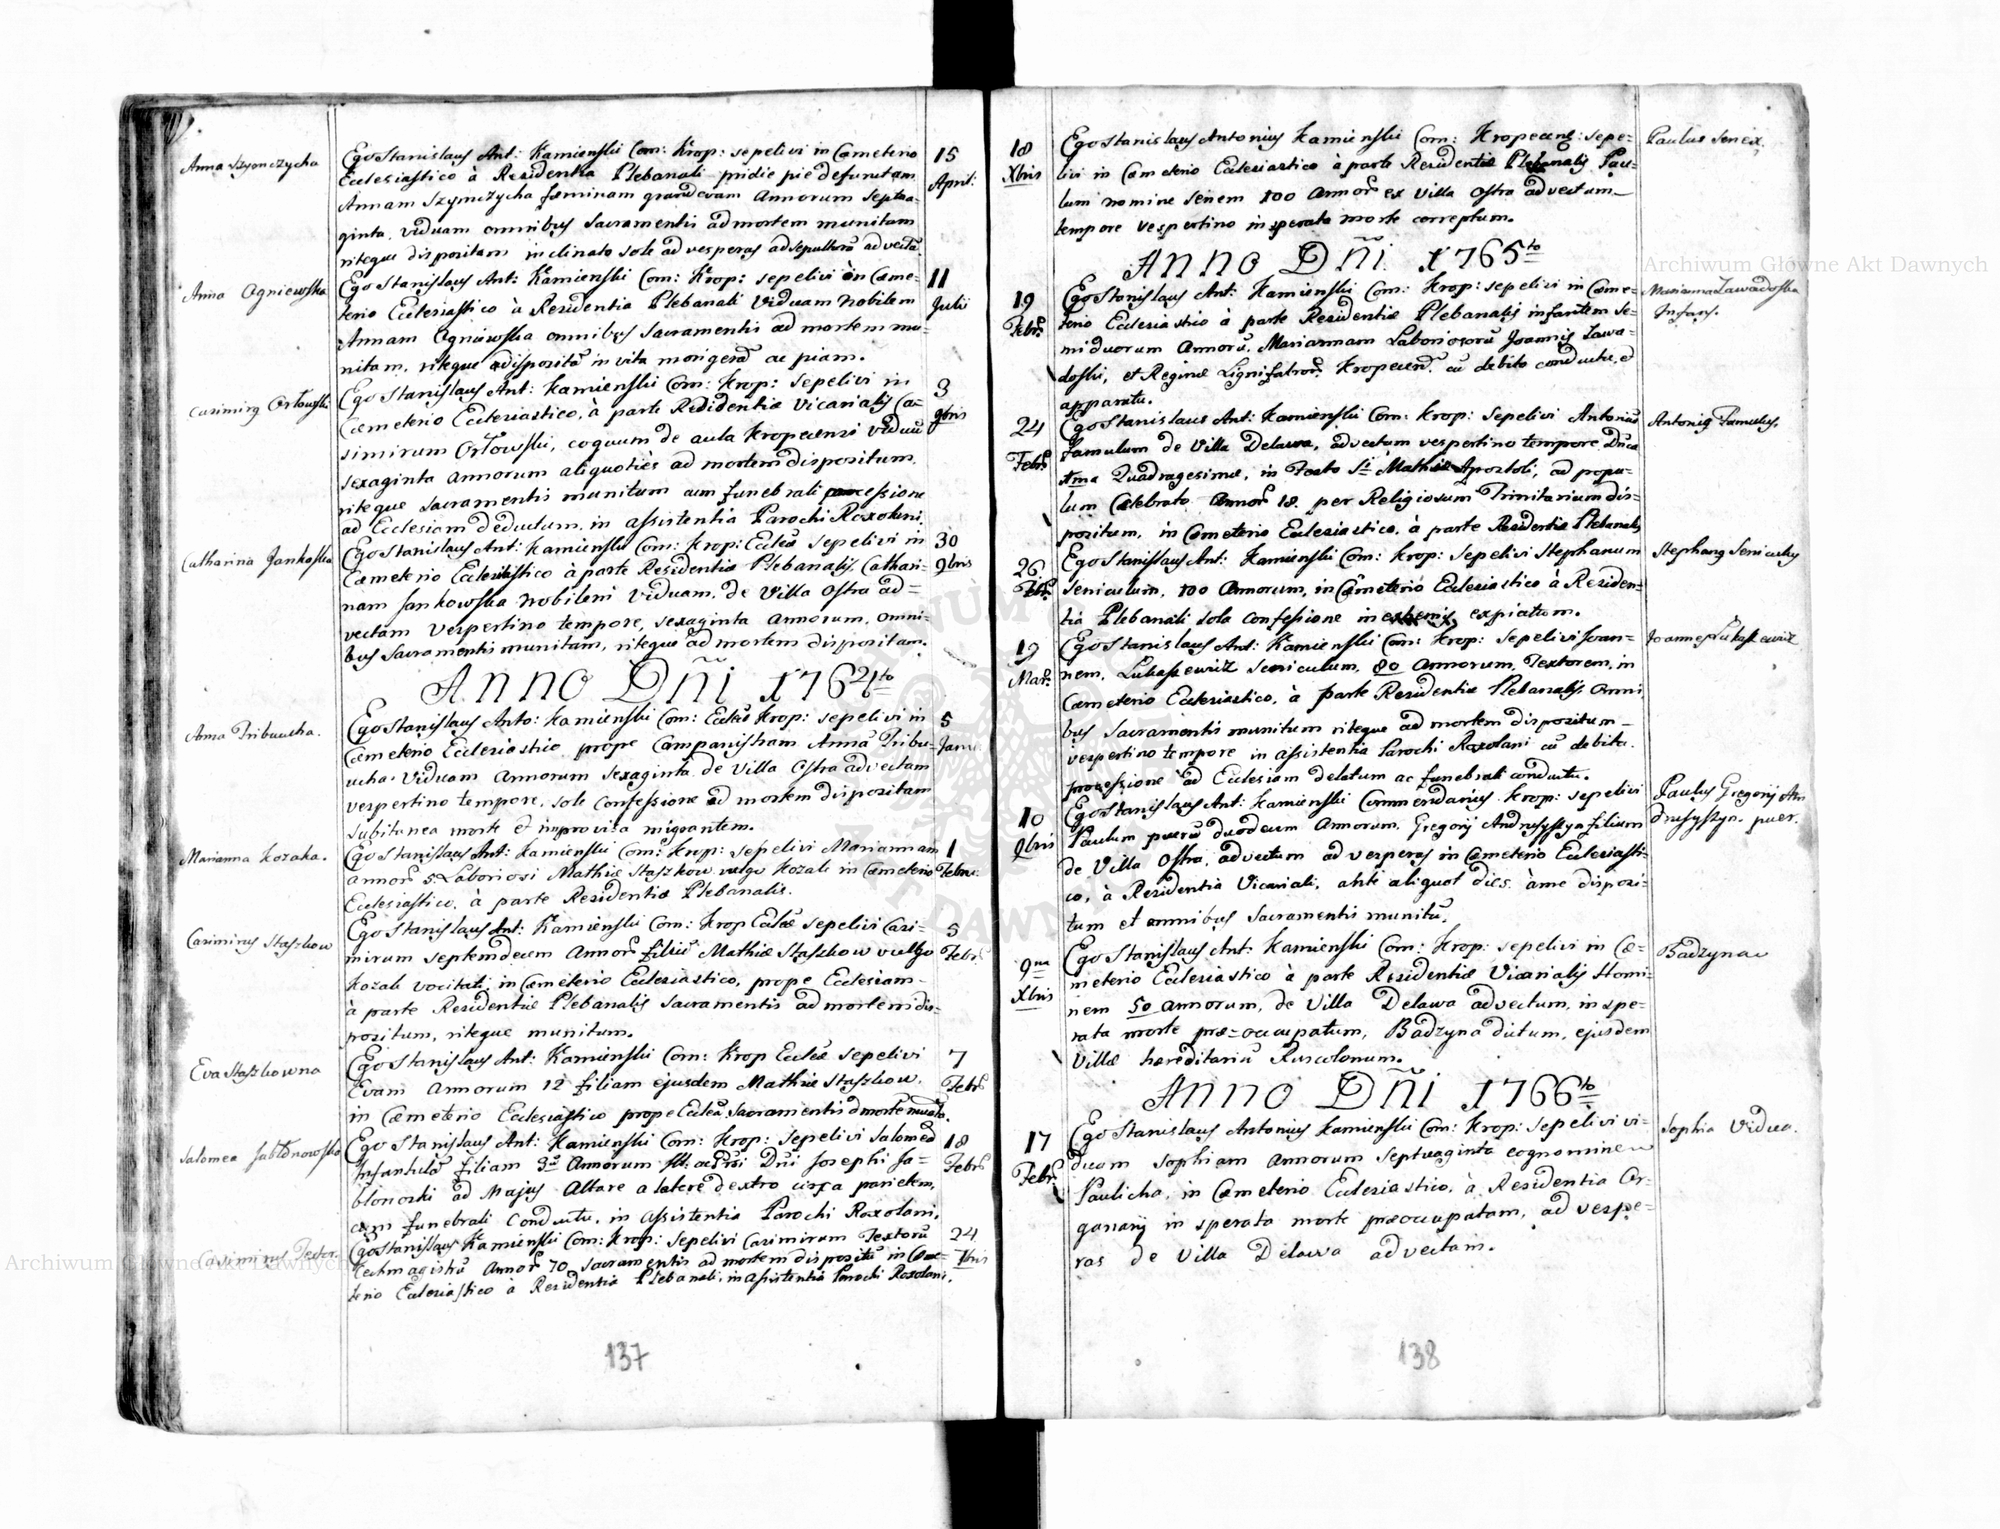 Anna Szymczycha
Ego Stanislaus Ant: Kamienski Com: Krop: sepelivi in Cæmeterio
Ecclesiastico à Residentia Plebanali pridie pie defunctam
Annam Szymczycha fæminam grandævam Annorum septua-
ginta, viduam omnibus Sacramentis ad mortem munitam
riteque dispositam inclinato sole ad vesperas ad sepulturã advectã
15
April:
Anna Ogniewska
Ego Stanislaus Ant: Kamienski Com: Krop: sepelivi in Cæme-
terio Ecclesiastico à Residentia Plebanali Viduam Nobilem
Annam Ogniewska omnibus Sacramentis ad mortem mu-
nitam, riteque dispositã in vita morigerã ac piam.
11
Julii
Casimirq Orłowski
Ego Stanislaus Ant: Kamienski Com: Krop: sepelivi in
Cæmeterio Ecclesiastico, à parte Residentiæ Vicarialis Ca-
simirum Orłowski, coquum de aula Kropecensi viduũ
sexaginta annorum aliquoties ad mortem dispositum,
riteque sacramentis munitum cum funebrali processione
ad Ecclesiam deductum, in assistentia Parochi Roxolani.
3
9bris
Catharina Jankoska
Ego Stanislaus Ant: Kamienski Com: Krop: Eccleæ sepelivi in
Cæmeterio Ecclesiastico à parte Residentiæ Plebanalis Cathari-
nam Jankowska Nobilem Viduam, de Villa Ostra ad=
vectam vespertino tempore, sexaginta annorum, omni-
bus Sacramentis munitam, riteque ad mortem dispositam.
30
9bris
ANNO Dñi 1764to
Anna Tribuucha.
Ego Stanislaus Anto: Kamienski Com: Eccleæ Krop: sepelivi in
Cæmeterio Ecclesiastico prope Campanistram Annã Tribu-
ucha Viduam annorum sexaginta de Villa Ostra advectam
vespertino tempore, sole confessione ad mortem dispositam
subitanea morte et improvisa migrantem.
5
Janu:
Marianna Kozaka.
Ego Stanislaus Ant: Kamienski Com: Krop: sepelivi Mariannam
annor 5. Laboriosi Mathiæ Staszkow vulgo Kozak in Cæmeterio
Ecclesiastico, à parte Residentiæ Plebanalis.
1
Febru:
Casimirus Staszkow
Ego Stanislaus Ant: Kamienski Com: Krop Eccleæ sepelivi Casi-
mirum septemdecem Annor filiũ Mathiæ Staszkow vulgo
Kozak vocitati, in Cæmeterio Ecclesiastico, prope Ecclesiam-
à parte Residentiæ Plebanalis sacramentis ad mortem dis-
positum, riteque munitum.
5
Febr:
Eva Staszkowna
Ego Stanislaus Ant: Kamienski Com: Krop Eccleæ sepelivi
Evam Annorum 12 filiam ejusdem Mathiæ Staszkow.
in Cæmeterio Ecclesiastico prope Eccleã, Sacramentis
7
Febr:
Salomea Jabłonowska
Ego Stanislaus Ant: Kamienski Com: Krop: sepelivi Salomeã
Infantulã filiam Annorum Dñi Josephi Ja=
blonoski ad Majus Altare a latere dextro circa parietem,
cum funebrali conductu, in assistentia Parochi Roxolani.
18
Febr:
Casimirus Textor.
Ego Stanislaus Kamienski Com: Krop: sepelivi Casimirum Textorũ
Cechmagistrũ Annor 70 sacramentis ad mortem dispositũ in Cæme-
terio Ecclesiastico à Residentia Plebanali, in assistentia Parochi Roxolani.
24
137
18
Xbris
Ego Stanislaus Antonius Kamienski Com: Kropecens: sepe-
livi in Cæmeterio Ecclesiastico à parte Residentiæ Plebanalis Pau-
lum nomine senem 100 Annor ex Villa Ostra advectum
tempore vespertino insperata morte correptum.
Paulus Senex.
ANNO Dñi 1765to
19
Febr:
Ego Stanislaus Ant: Kamienski Com: Krop: sepelivi in Cæme-
terio Ecclesiastico à parte Residentiæ Plebanalis infantem se-
miduorum Annorũ, Mariannam Laboriosorũ Joannis Zawa-
doski, et Reginæ Lignifabror Kropecen: cũ debito conductu, et
apparatu.
Marianna Zawadoska
Infans.
24
Febr:
Ego Stanislaus Ant: Kamienski Com: Krop: sepelivi Antoniũ
famulum de Villa Delawa, advectum vespertino tempore Dnca
Quadragesimæ, in Festo Sti Mathiæ Apostoli, ad popu-
lum celebrato Annor 18. per Religiosum Trinitarium dis-
positum, in Cæmeterio Ecclesiastico, à parte Residentiæ Plebanalis
Antonius Famulus.
26
Febr:
Ego Stanislaus Ant: Kamienski Com: Krop: sepelivi Stephanum
seniculum, 100 Annorum, in Cæmeterio Ecclesiastico à Residen-
tia Plebanali sola confessione in extremis expiatum.
Stephanus Seniculus
19
Mar:
Ego Stanislaus Ant: Kamienski Com: Krop: sepelivi Joan=
nem, Lukaszewicz seniculum, 80 Annorum, Textorem, in
Cæmeterio Ecclesiastico, à parte Residentiæ Plebanalis. Omni
bus Sacramentis munitum riteque ad mortem dispositum-
vespertino tempore in assistentia Parochi Roxolani cũ debita
processione ad Ecclesiam delatum ac funebrali conductu.
Joannes Lukaszewicz
10
9bris
Ego Stanislaus Ant: Kamienski Commendarius Krop: sepelivi
Paulum puerũ duodecim Annorum, Gregorij Andruszyszyn filium
de Villa Ostra, advectum ad vesperas in Cæmeterio Ecclesiasti-
co, à Residentia Vicariali, ante aliquot dies à me disposi-
tum et omnibus Sacramentis munitũ.
Paulus Gregorij An
druszyszyn puer.
9na
Xbris
Ego Stanislaus Ant: Kamienski Com: Krop: sepelivi in Cæ-
meterio Ecclesiastico à parte Residentiæ Vicarialis Homi-
nem 50 annorum, de Villa Delawa advectum, inspe-
rata morte præ=occupatum, Badzyna dictum, ejusdem
Villæ hæreditariũ Ruscolonum.
Badzyna
ANNO Dñi 1766to
17
Febr:
Ego Stanislaus Antonius Kamienski Com: Krop: sepelivi vi-
duam Sophiam Annorum septuaginta cognomine
Paulicha, in Cæmeterio Ecclesiastico, à Residentia Or-
ganarij insperata morte præoccupatam, ad vespe-
ras de Villa Delawa advectam.
Sophia Vidua.
138
Archiwum Główne Akt Dawnych
Archiwum Główne Akt Dawnych